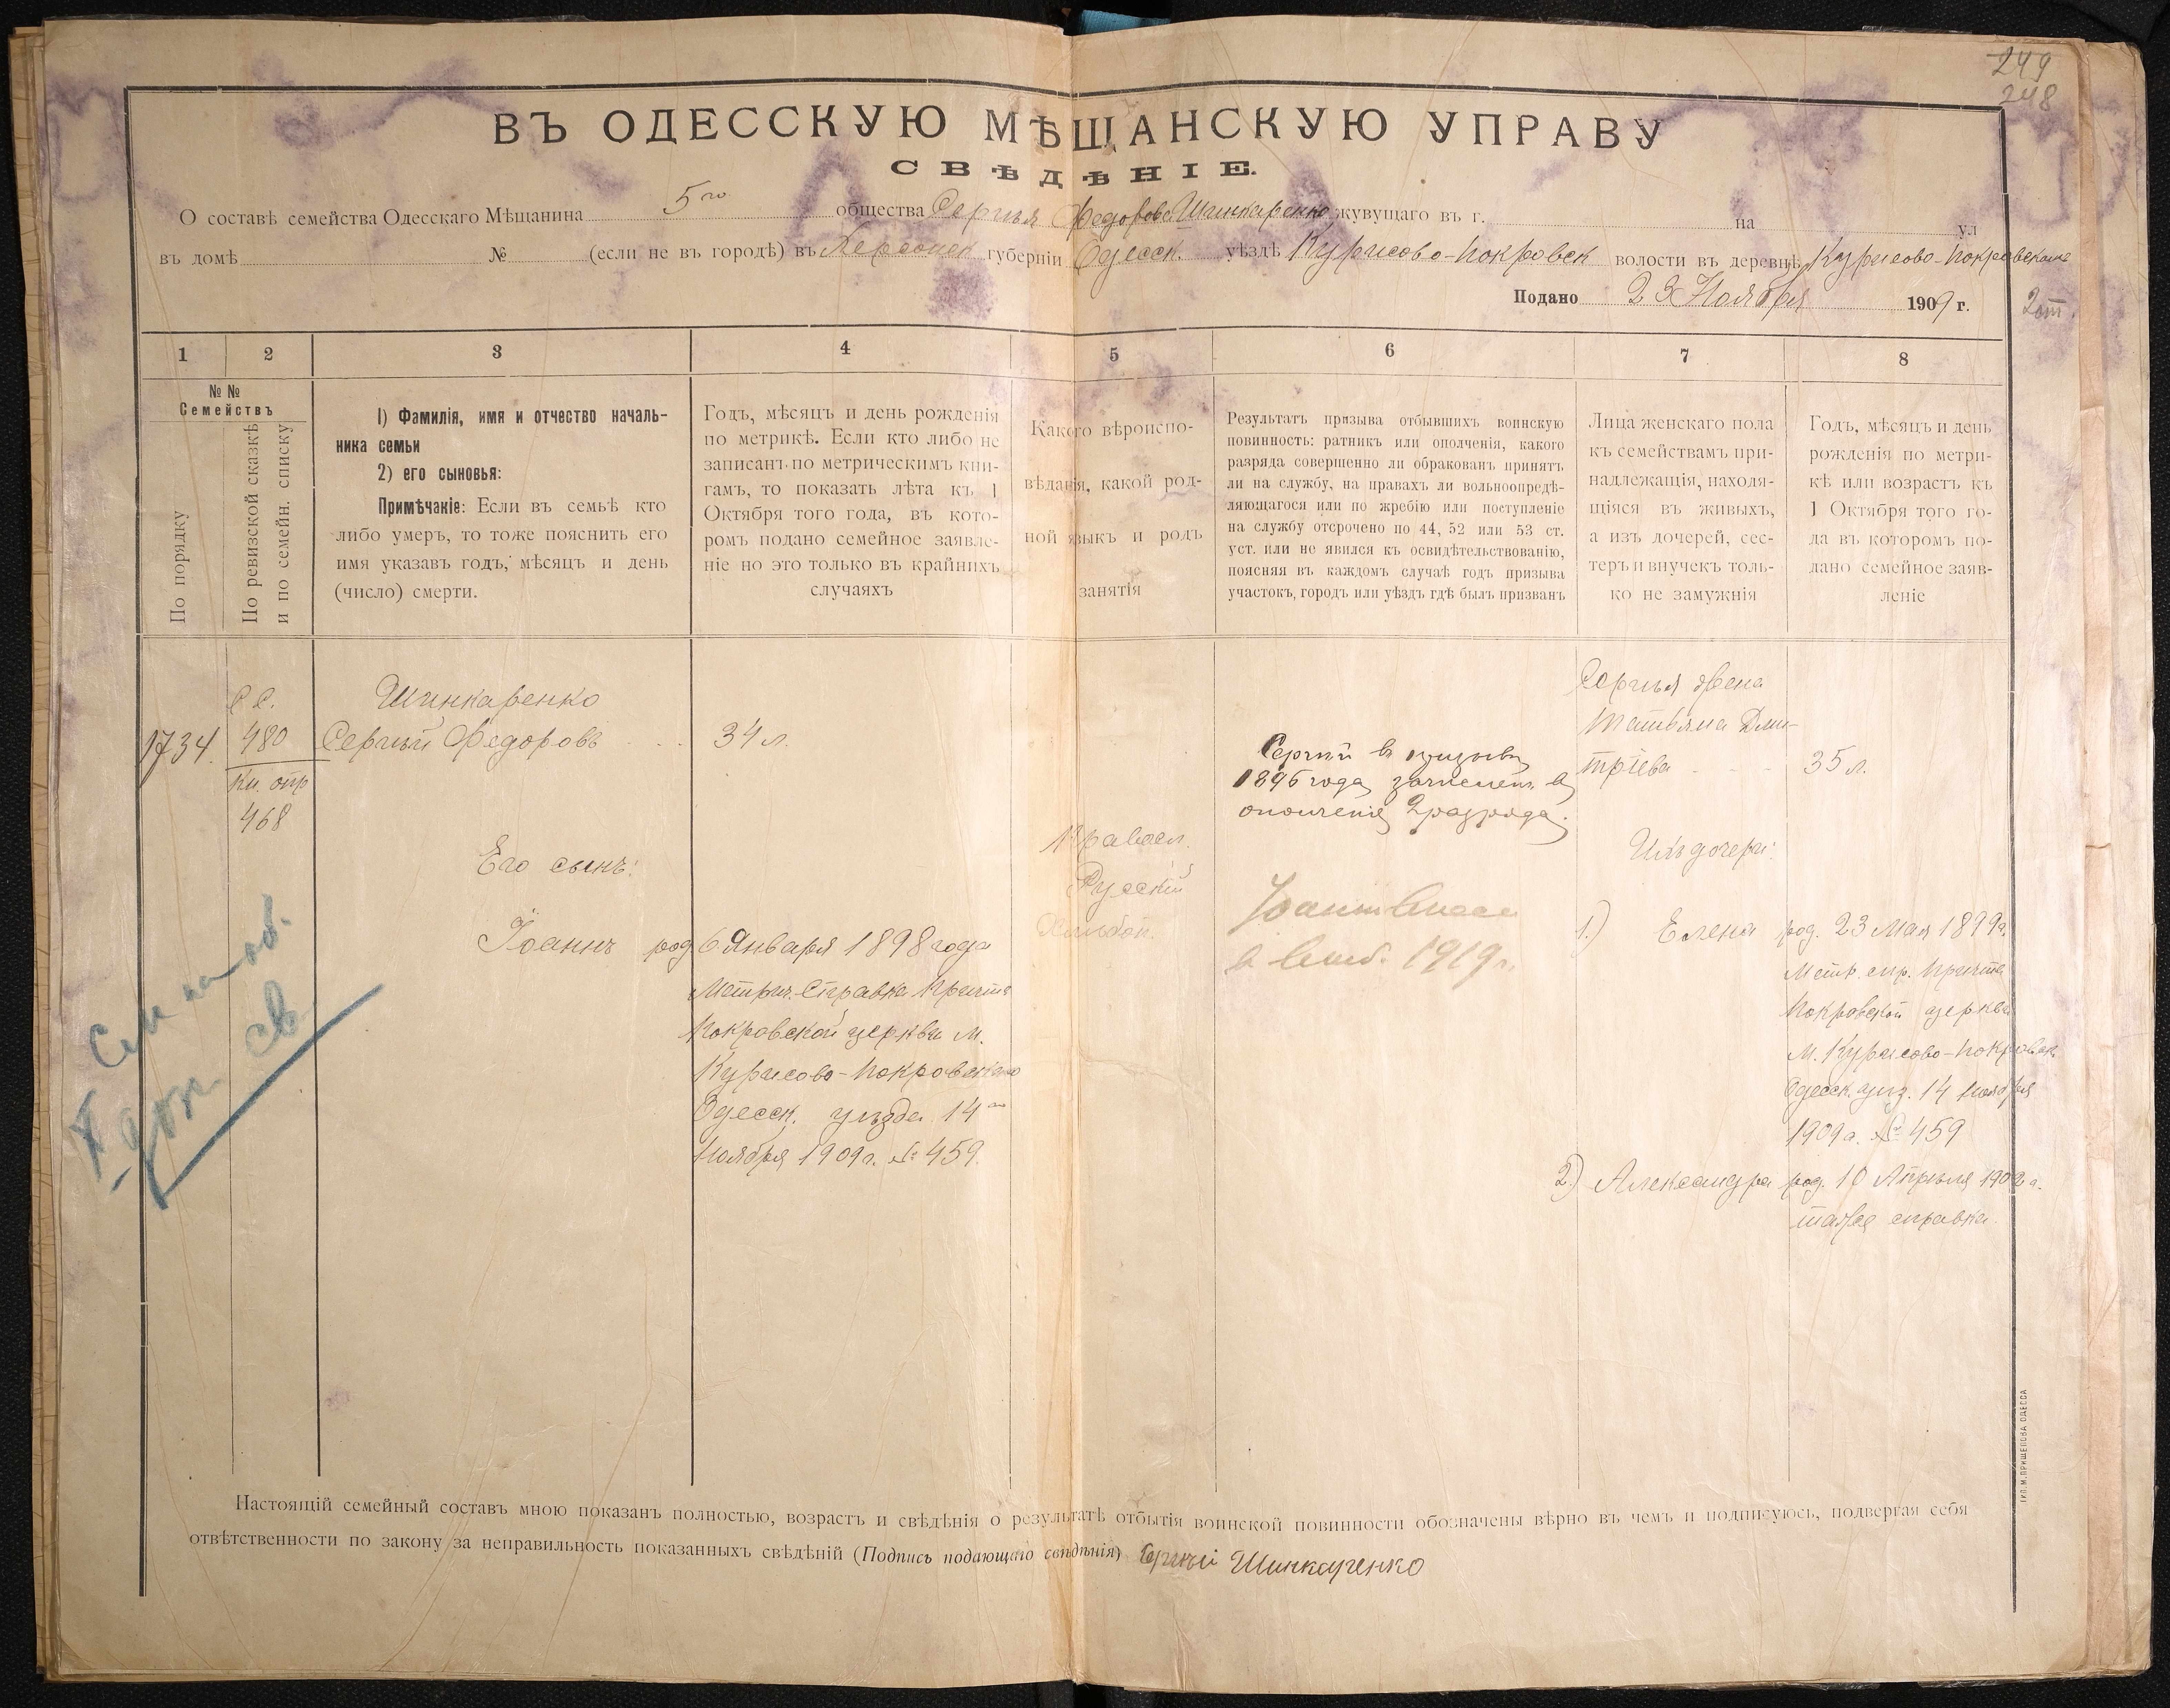 249
248
ВЪ ОДЕССКУЮ МѢЩАНСКУЮ УПРАВУ
СВѢДѢНІЕ.
О составѣ семейства Одесскаго Мѣщанина 5го общества Сергѣя Федорова Шинкаренко жувущаго въ г. на ул
въ домѣ № (если не въ городѣ) въ Херсонск губерніи Одесск. уѣздѣ Курисово-Покровск волости въ деревнѣ Курисово-Покровскаме
Подано 23 Ноября 1909 г.
2 от.
1 2 3 4 5 6 7 8
№ №
Семействъ
По порядку
По ревизской сказкѣ
и по семейн. списку
1) Фамилія, имя и отчество началь-
ника семьи
2) его сыновья:
Примѣчакіе: Если въ семьѣ кто
либо умеръ, то тоже пояснить его
имя указавъ годъ, мѣсяцъ и день
(число) смерти.
Годъ, мѣсяцъ и день рожденія
по метрикѣ. Если кто либо не
записанъ по метрическимъ кни-
гамъ, то показать лѣта къ 1
Октября того года, въ кото-
ромъ подано семейное заявле-
ніе но это только въ крайнихъ
случаяхъ
Какого вѣроиспо-
вѣданія, какой род-
ной языкъ и родъ
занятія
Результатъ призыва отбывшихъ воинскую
повинность: ратникъ или ополченія, какого
разряда совершенно ли обракованъ принятъ
ли на службу, на правахъ ли вольноопредѣ-
ляющагося или по жребію или поступленіе
на службу отсрочено по 44, 52 или 53 ст.
уст. или не явился къ освидѣтельствованію,
поясняя въ каждомъ случаѣ годъ призыва
участокъ, городъ или уѣздъ гдѣ былъ призванъ
Лица женскаго пола
къ семействамъ при-
надлежащія, находя-
щіяся въ живыхъ,
а изъ дочерей, сес-
теръ и внучекъ толь-
ко не замужнія
Годъ, мѣсяцъ и день
рожденія по метри-
кѣ или возрастъ къ
1 Октября того го-
да въ которомъ по-
дано семейное заяв-
леніе
1734.
С С.
480
Кн. отр
468
Шинкаренко
Сергѣй Федоровъ
34 л.
Его сынъ:
Іоаннъ род 6 Января 1898 года
Метрич. Справка Причта
Покровской церкви М.
Курисово-Покровскаго
Одесск. уѣзда 14го
Ноября 1909 г. № 459.
Правосл.
Русскій
Хлѣбоп.
Сергѣй в призыва
1896 года зачислен в
ополченіе 2 разряда.
Іоанн
в 1919 г.
Сергѣя жена
Татьяна Дми-
тріева
35 л.
Ихъ дочери:
1.) Елена род. 23 Мая 1899 г.
Метр. спр. Причта
Покровской церкви
М. Курисово-Покровск
Одесск. уѣз. 14 Ноября
1909 г. № 459
2.) Александра род. 10 Апрѣля 1902 г.
таже справка.
Настоящій семейный составъ мною показанъ полностью, возрастъ и свѣдѣнія о результатѣ отбытія воинской повинности обозначены вѣрно въ чемъ и подписуюсь, подвергая себя
отвѣтственности по закону за неправильность показанныхъ свѣдѣній (Подпись подающаго свѣдѣнія) Сергѣй Шинкаренко
ТИП. М. ПРИЩЕПОВА ОДЕССА